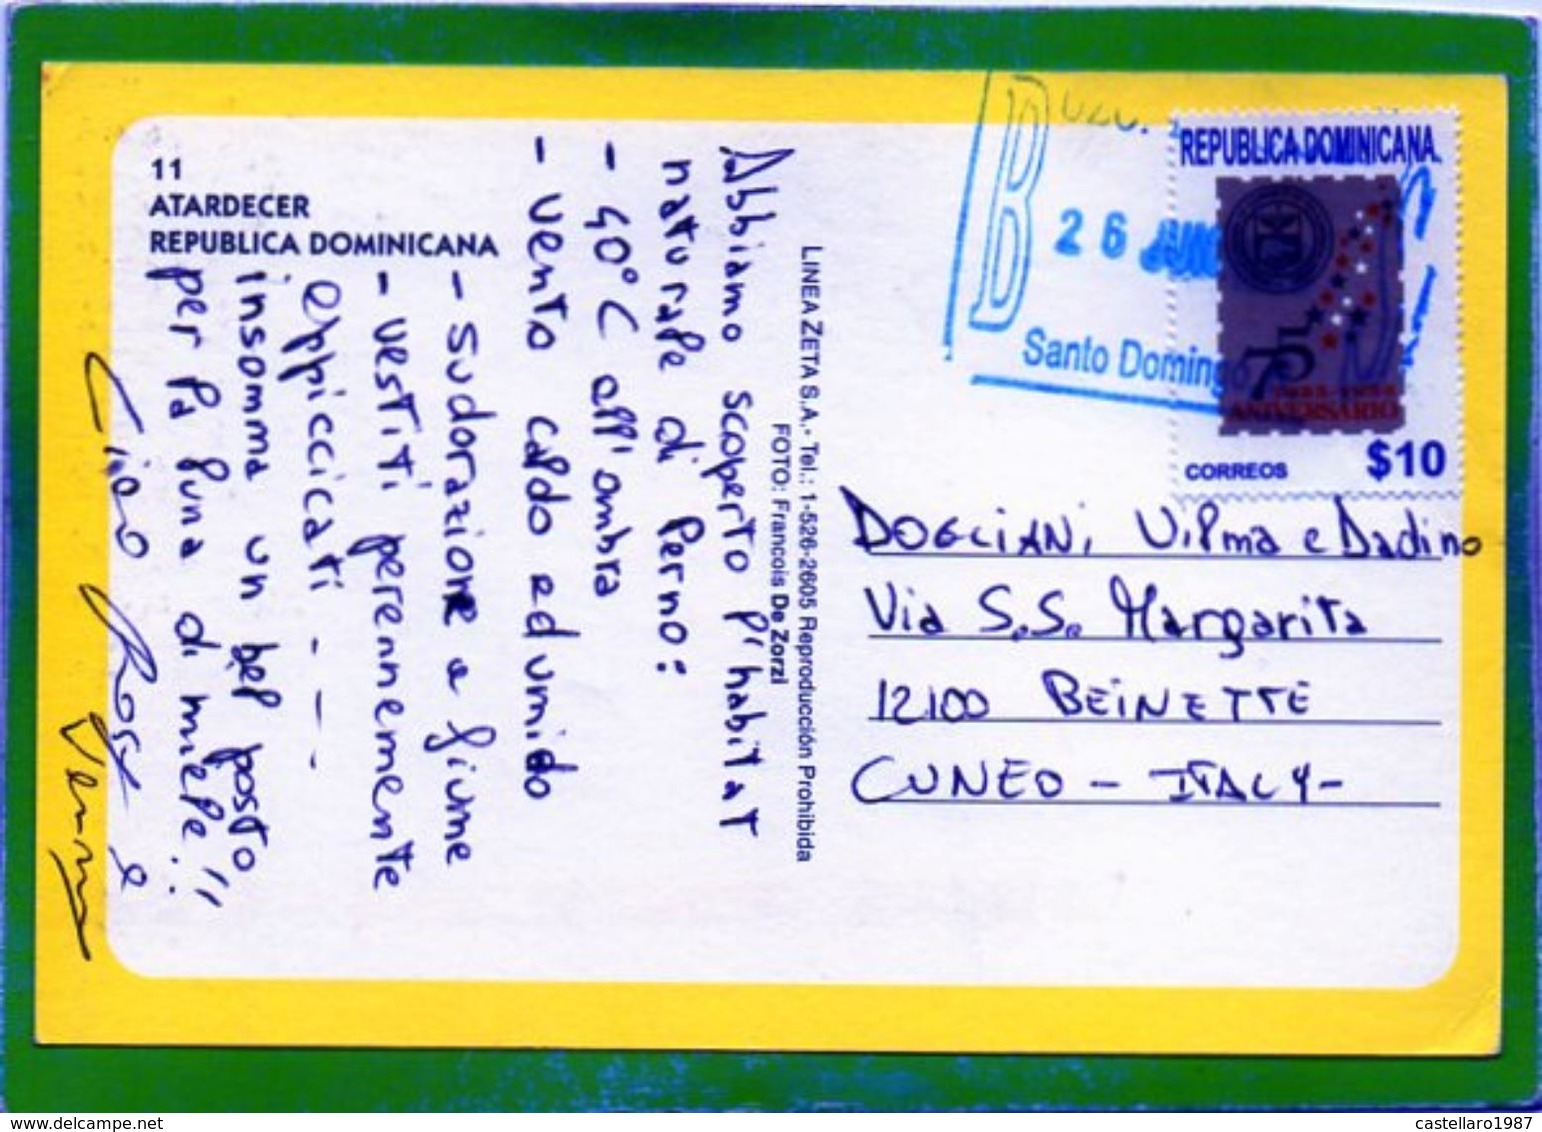 11
ATARDECER
REPUBLICA DOMINICANA
Abbiamo scoperto l'habitat
naturale di Perno:
- 40°C all'ombra
- vento caldo ed umido
- sudorazione a fiume
- vestiti perennemente
appiccicati - - -
insomma un bel posto
per la luna di miele!!
Ciao Rosy e
LINEA ZETA S.A.- Tel.: 1-526-2605 Reproducción Prohibida
FOTO: Francois De Zorzi
B
26 JUN
Santo Domingo
REPUBLICA DOMINICANA
75
ANIVERSARIO
CORREOS $10
DOGLIANI Vilma e Dadino
Via S.S. Margarita
12100 BEINETTE
CUNEO - ITALY -
delcampe.net
castellaro1987